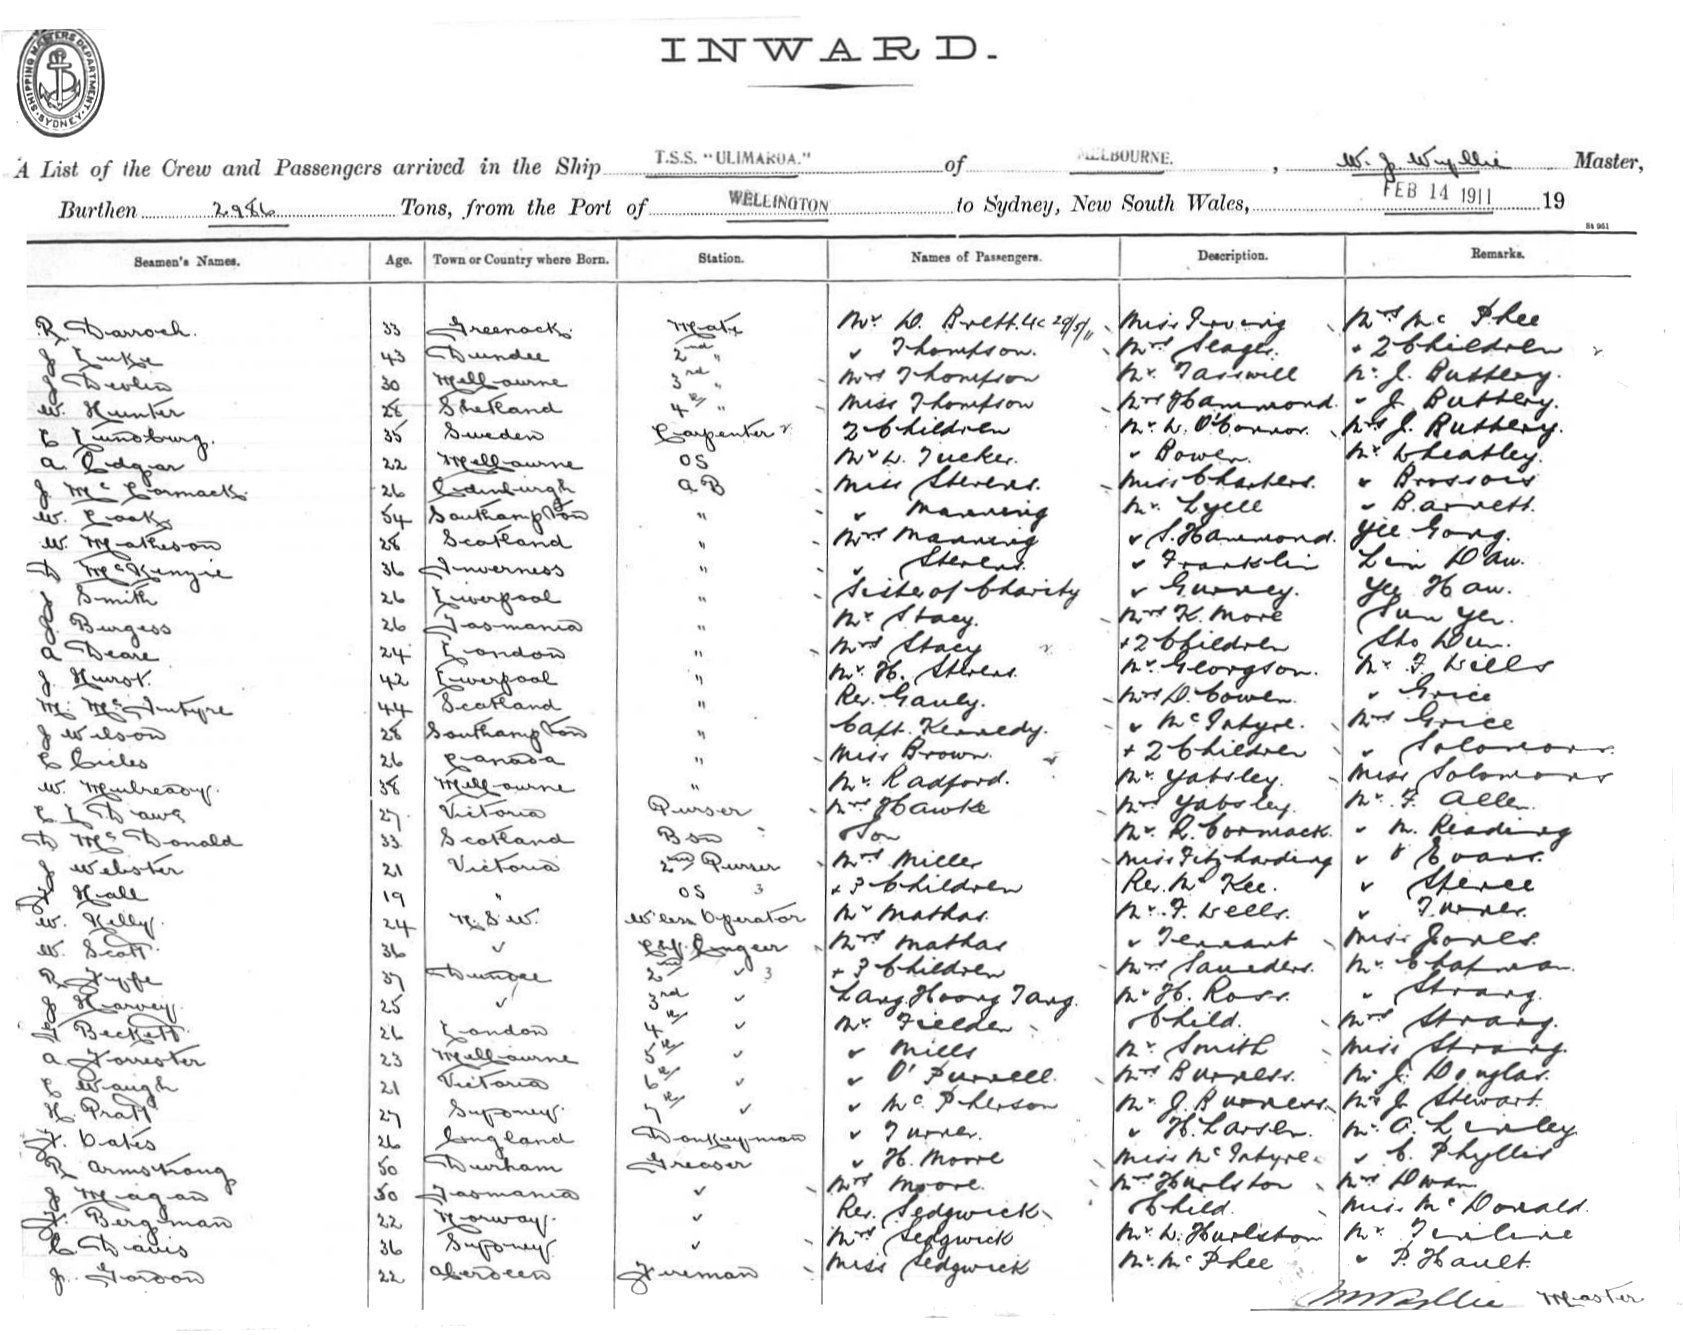 SHIPPING MASTERS DEPARTMENT. SYDNEY.
INWARD.
A List of the Crew and Passengers arrived in the Ship T.S.S. "ULIMAROA." of MELBOURNE. , W. J. Wyllie Master,
Burthen 2986 Tons, from the Port of WELLINGTON to Sydney, New South Wales, FEB 14 1911 19
Seamen's Names. Age. Town or Country where Born. Station. Names of Passengers. Description. Remarks.
R Darroch. 33 Greenock. Mate Mr. D. Brett. Miss Irving Mrs Mc Phee
J 43 Dundee 2nd " " Thompson. Mrs Seager. + 2 Children
J Devlin 30 Melbourne 3rd " Mrs Thompson Mr. Tasswill Mr. J. Buttery.
W. Hunter 28 Shetland 4th " Miss Thompson Mrs Hammond. " J. Buttery.
C Lundburg. 35 Sweden Carpenter 2 Children Mr. W. O'Connor. Mrs J. Buttery.
A. Edgar 22 Melbourne OS Mr W. Tucker. " Bowen. Mr. Wheatley.
J. McCormack. 26 Edinburgh AB Miss Stevens. Miss Charters. "
W. Cook 54 Southampton " " Manning Mr. Lyell " Barnett.
W. Matheson 28 Scotland " Mrs Manning " S. Hammond. Yee Gong.
D McKenzie 36 Inverness " " Stevens. " Franklin Lin Daw.
J Smith 26 Liverpool " Sister of Charity " Gurney. Yee Haw.
J. Burgess 26 Tasmania " Mr Stacy. Mrs K. More Sun Yen.
A Deare 24 London " Mrs Stacy + 2 Children
J. Hurst. 42 Liverpool " Mr. H. Stevens. Mr. Georgson. Mr. F. Wells
M. McIntyre 44 Scotland " Rev. Gauly. Mrs D. Cowen. " Grice
J Wilson 28 Southampton " Capt. Kennedy. " McIntyre. Mrs Grice
C Eccles 26 Canada " Miss Brown. + 2 Children " Solomons.
W. Mulready. 38 Melbourne " Mr. Radford. Mr. Yabsley. Miss Solomons
C L Dawe 27. Victoria Purser Mrs Hawke Mrs Yabsley. Mr. F. Allen.
D McDonald 33 Scotland Bsn Son Mr. R. Cormack. " M. Reading
J Webster 21 Victoria 2nd Purser Mrs Miller Miss Fitzharding " Evans.
F Hall 19 " OS + 3 Children Rev. McKee. " Spence
W. Kelly. 24 N.S.W. W'less Operator Mr Mathas. Mr. F. Wells. " Turner.
W. Scott. 36 " Chf. Engeer Mrs Mathas " Tennant Miss Jones.
R Fyffe 37 Dundee 2nd " + 3 Children Mrs Saunders. Mr. Chapman.
J Harvey. 25 " 3rd " Lang Hoong Tang. Mr H. Ross. " Strang.
F Beckett. 26 London 4th " Mr. Fielder Child. Mrs Strang.
A Forrester 23 Melbourne 5th " " Mills Mr Smith Miss Strang.
C Waugh 21 Victoria 6th " " O'Purnell. Mrs Burness. Mr. J. Douglas.
H. Pratt 27 Sydney. 7th " " McPherson Mr. J. Burness. Mr J. Stewart.
F. Oates 26 England Donkeyman " Turner. " H. Larsen. Mr. A. Linley
R Armstrong 50 Durham Greaser " H. Moore Miss McIntyre " C. Phyllis
J Magan 30 Tasmania " Mrs Moore. Mrs Hurlston Mrs Dwan
F. Bergman 22 Norway. " Rev. Sedgwick Child. Miss McDonald.
C Davis 36 Sydney " Mrs Sedgwick Mr. W. Hurlston Mr.
J. Gordon 22 Aberdeen Fireman Miss Sedgwick Mr. McPhee " P. Hault.
Wyllie Master